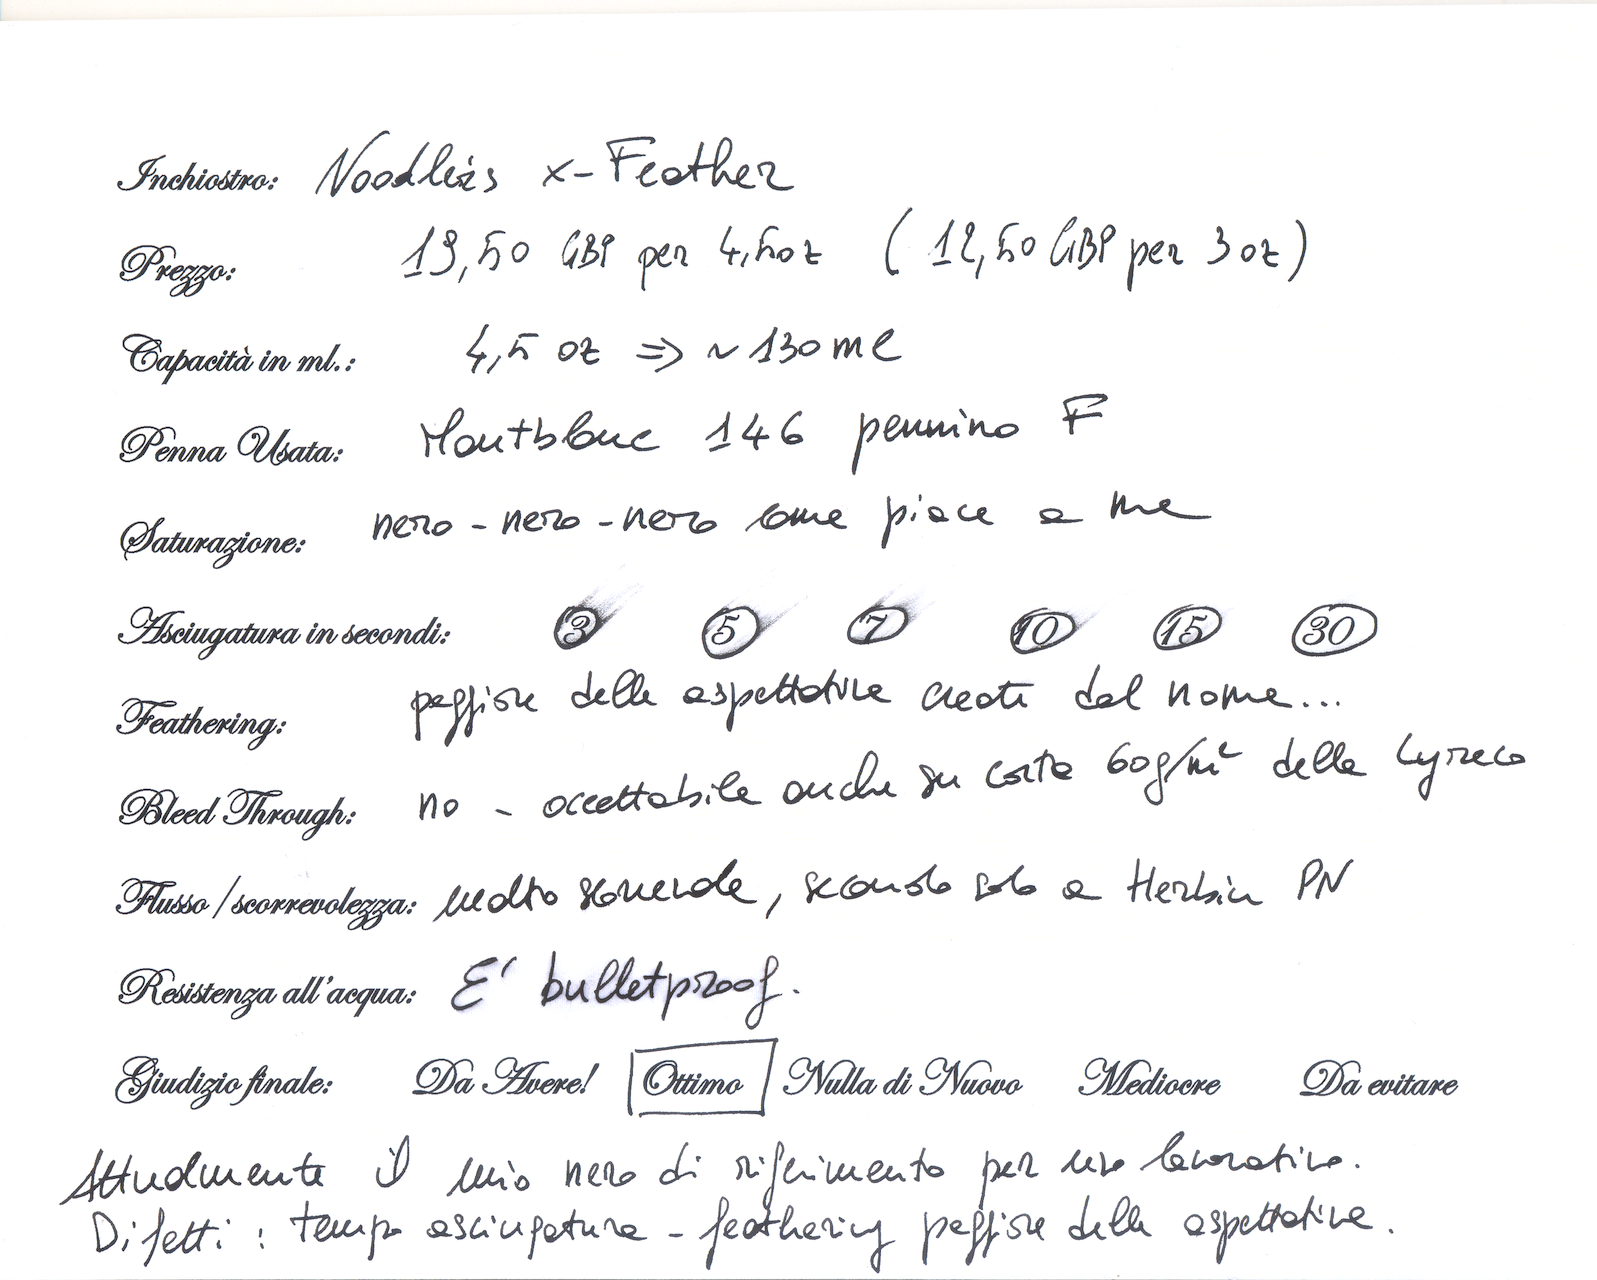 Inchiostro: Noodler's x-Feather
Prezzo: 19,50 GBP per 4,5oz (12,50 GBP per 3 oz)
Capacità in ml.: 4,5 oz => ~130 ml
Penna Usata: Montblanc 146 pennino F
Saturazione: nero - nero - nero come piace a me
Asciugatura in secondi: 3 5 7 10 15 30
Feathering: peggiore delle aspettative create dal nome...
Bleed Through: no - accettabile anche su carta 60g/m² della Lyreco
Flusso/scorrevolezza: molto scorrevole, secondo solo a Herbin PN
Resistenza all'acqua: E' bulletproof.
Giudizio finale: Da Avere! Ottimo Nulla di Nuovo Mediocre Da evitare
Attualmente il mio nero di riferimento per uso lavorativo.
Difetti: tempo asciugatura - feathering peggiore delle aspettative.